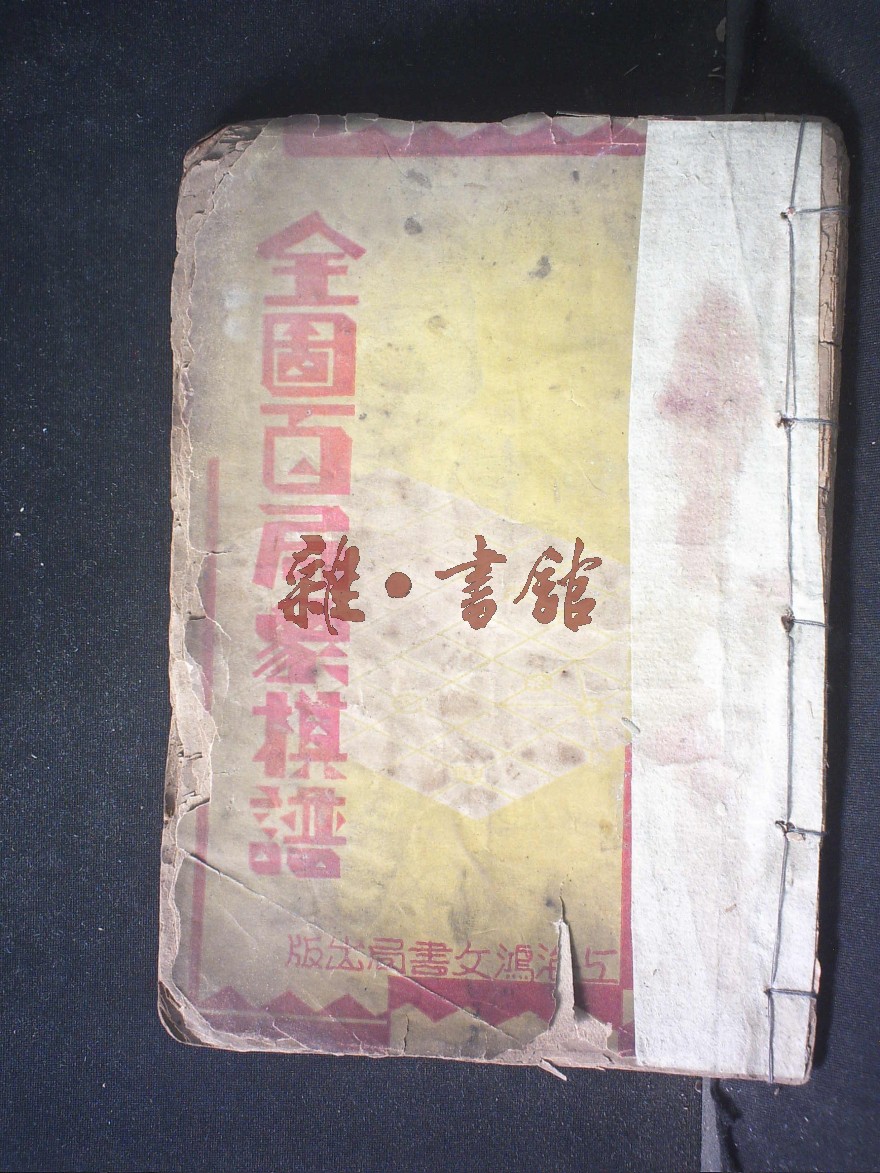 全圖百局象棋譜
雜·書館
上海鴻文書局出版